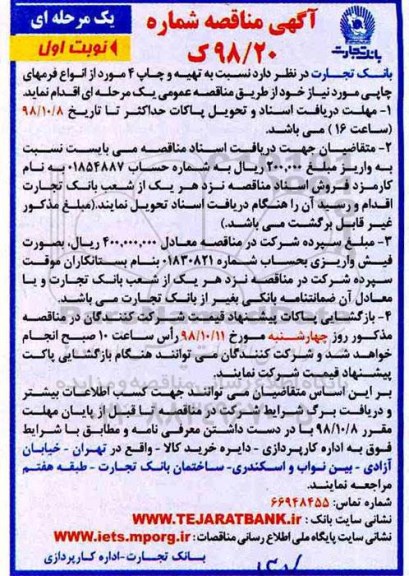 یک مرحله ای
نوبت اول
آگهی مناقصه شماره
۹۸/۲۰ک
بانک تجارت
بانک تجارت در نظر دارد نسبت به تهیه و چاپ ۴ مورد از انواع فرمهای
چاپی مورد نیاز خود از طریق مناقصه عمومی یک مرحله ای اقدام نماید.
۱- مهلت دریافت اسناد و تحویل پاکات حداکثر تا تاریخ ۹۸/۱۰/۸
(ساعت ۱۶) می باشد.
۲- متقاضیان جهت دریافت اسناد مناقصه می بایست نسبت
به واریز مبلغ ۲۰۰,۰۰۰ ریال به شماره حساب ۰۱۸۵۴۸۸۷ به نام
کارمزد فروش اسناد مناقصه نزد هر یک از شعب بانک تجارت
اقدام و رسید آن را هنگام دریافت اسناد تحویل نمایند.(مبلغ مذکور
غیر قابل برگشت می باشد.)
۳- مبلغ سپرده شرکت در مناقصه معادل ۴۰۰,۰۰۰,۰۰۰ ریال، بصورت
فیش واریزی بحساب شماره ۰۱۸۳۰۸۲۱ بنام بستانکاران موقت
سپرده شرکت در مناقصه نزد هر یک از شعب بانک تجارت و یا
معادل آن ضمانتنامه بانکی بغیر از بانک تجارت می باشد.
۴- بازگشایی پاکات پیشنهاد قیمت شرکت کنندگان در مناقصه
مذکور روز چهارشنبه مورخ ۹۸/۱۰/۱۱ رأس ساعت ۱۰ صبح انجام
خواهد شد و شرکت کنندگان می توانند هنگام بازگشایی پاکت
پیشنهاد قیمت شرکت نمایند.
بر این اساس متقاضیان می توانند جهت کسب اطلاعات بیشتر
و دریافت برگ شرایط شرکت در مناقصه تا قبل از پایان مهلت
مقرر ۹۸/۱۰/۸ با در دست داشتن معرفی نامه و مطابق با شرایط
فوق به اداره کارپردازی - دایره خرید کالا - واقع در تهران - خیابان
آزادی - بین نواب و اسکندری - ساختمان بانک تجارت - طبقه هفتم
مراجعه نمایند.
شماره تماس: ۶۶۹۴۸۴۵۵
نشانی سایت بانک : WWW.TEJARATBANK.ir
نشانی سایت پایگاه ملی اطلاع رسانی مناقصات: www.iets.mporg.ir
بانک تجارت-اداره کارپردازی